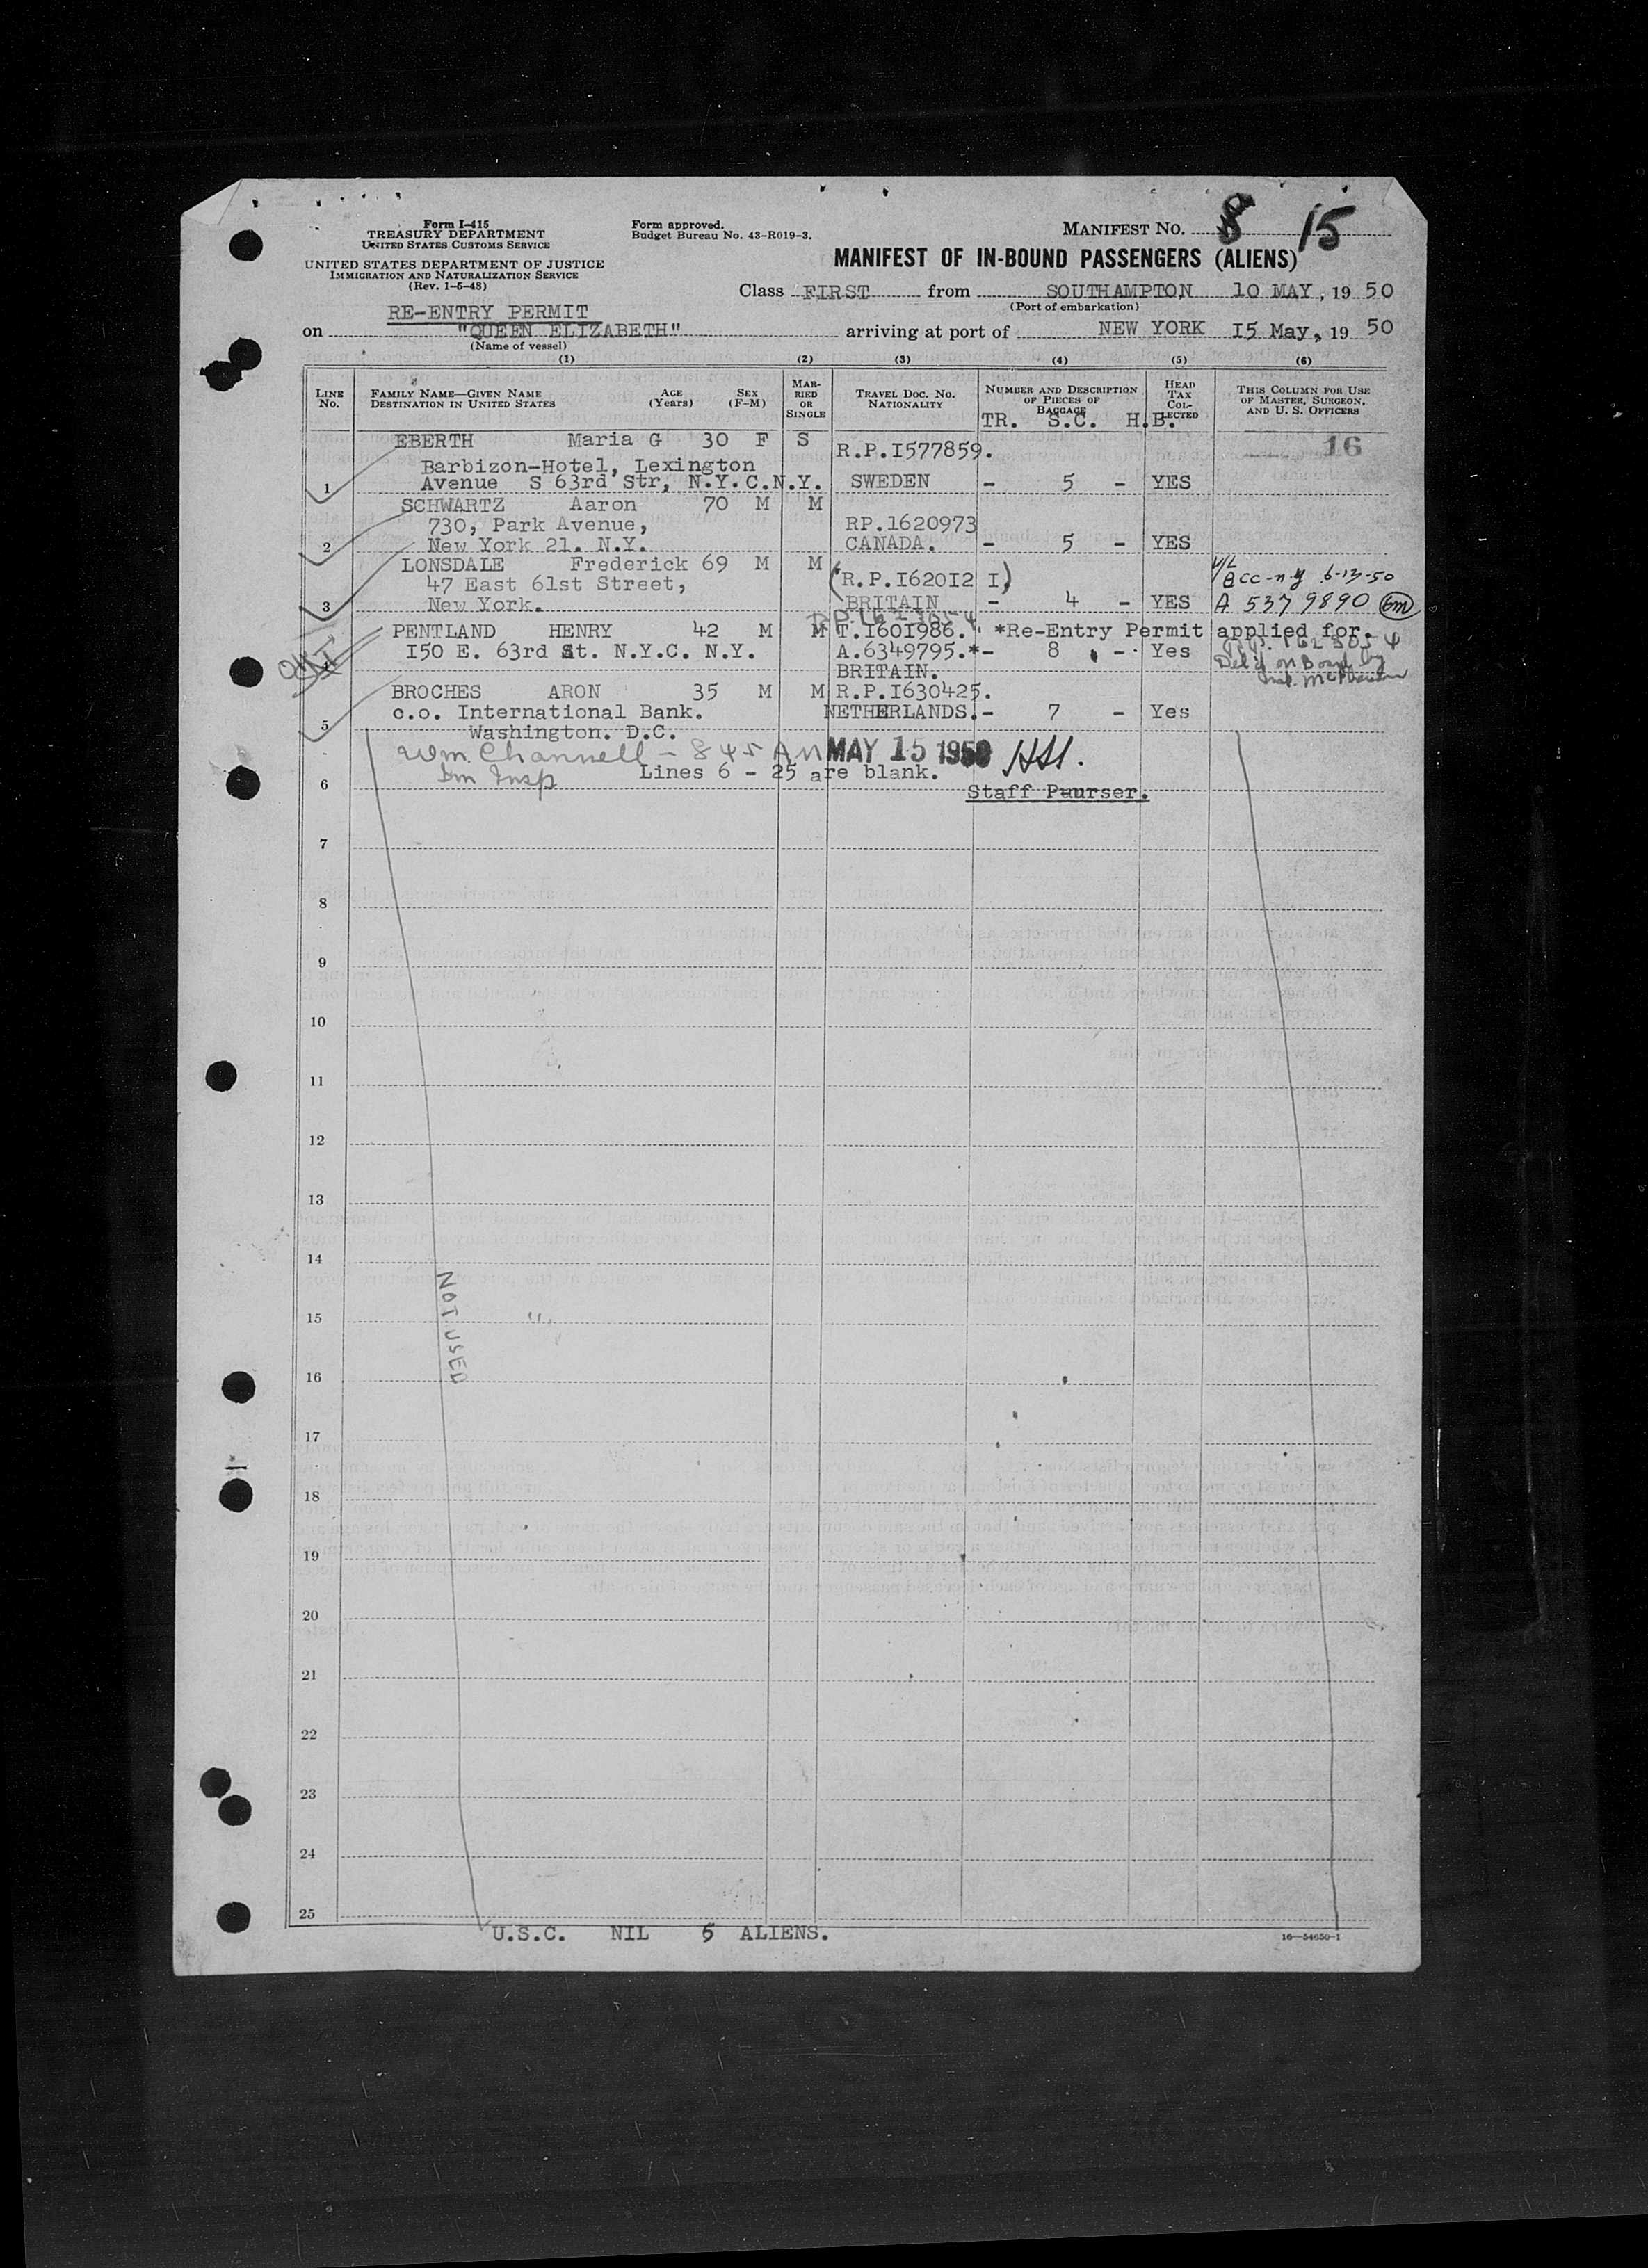 Form I-415
TREASURY DEPARTMENT
UNITED STATES CUSTOMS SERVICE
UNITED STATES DEPARTMENT OF JUSTICE
IMMIGRATION AND NATURALIZATION SERVICE
(Rev. 1-5-48)
Form approved.
Budget Bureau No. 43-R019-3.
MANIFEST NO. 8 15
MANIFEST OF IN-BOUND PASSENGERS (ALIENS)
Class FIRST from SOUTHAMPTON 10 MAY, 19 50
(Port of embarkation)
RE-ENTRY PERMIT
on "QUEEN ELIZABETH" arriving at port of NEW YORK I5 May, 19 50
(Name of vessel)
(1) (2) (3) (4) (5) (6)
LINE NO.
FAMILY NAME—GIVEN NAME
DESTINATION IN UNITED STATES
AGE (Years)
SEX (F-M)
MARRIED OR SINGLE
TRAVEL DOC. NO.
NATIONALITY
NUMBER AND DESCRIPTION OF PIECES OF BAGGAGE
HEAD TAX COLLECTED
THIS COLUMN FOR USE OF MASTER, SURGEON, AND U. S. OFFICERS
TR. S.C. H.B.
EBERTH Maria G 30 F S R.P.I577859. 16
Barbizon-Hotel, Lexington
1 Avenue S 63rd Str, N.Y.C.N.Y. SWEDEN - 5 - YES
SCHWARTZ Aaron 70 M M
730, Park Avenue, RP.1620973
2 New York 21. N.Y. CANADA. - 5 - YES
LONSDALE Frederick 69 M M V/L
47 East 61st Street, (R.P.I62OI2 I) Bcc-n.y 6-13-50
3 New York. BRITAIN - 4 - YES A 5379890
PENTLAND HENRY 42 M M T.I60I986. *Re-Entry Permit applied for.
4 I50 E. 63rd St. N.Y.C. N.Y. A.6349795.*- 8 - Yes
Del'd on Board by
BRITAIN.
BROCHES ARON 35 M M R.P.I630425.
5 c.o. International Bank. NETHERLANDS. - 7 - Yes
Washington. D.C.
Wm. Channell - 845 AM MAY 15 1950
Im Insp Lines 6 - 25 are blank.
6 Staff Purser.
7
8
9
10
11
12
13
14
NOT USED
15
16
17
18
19
20
21
22
23
24
25
U.S.C. NIL 5 ALIENS.
16—54650-1